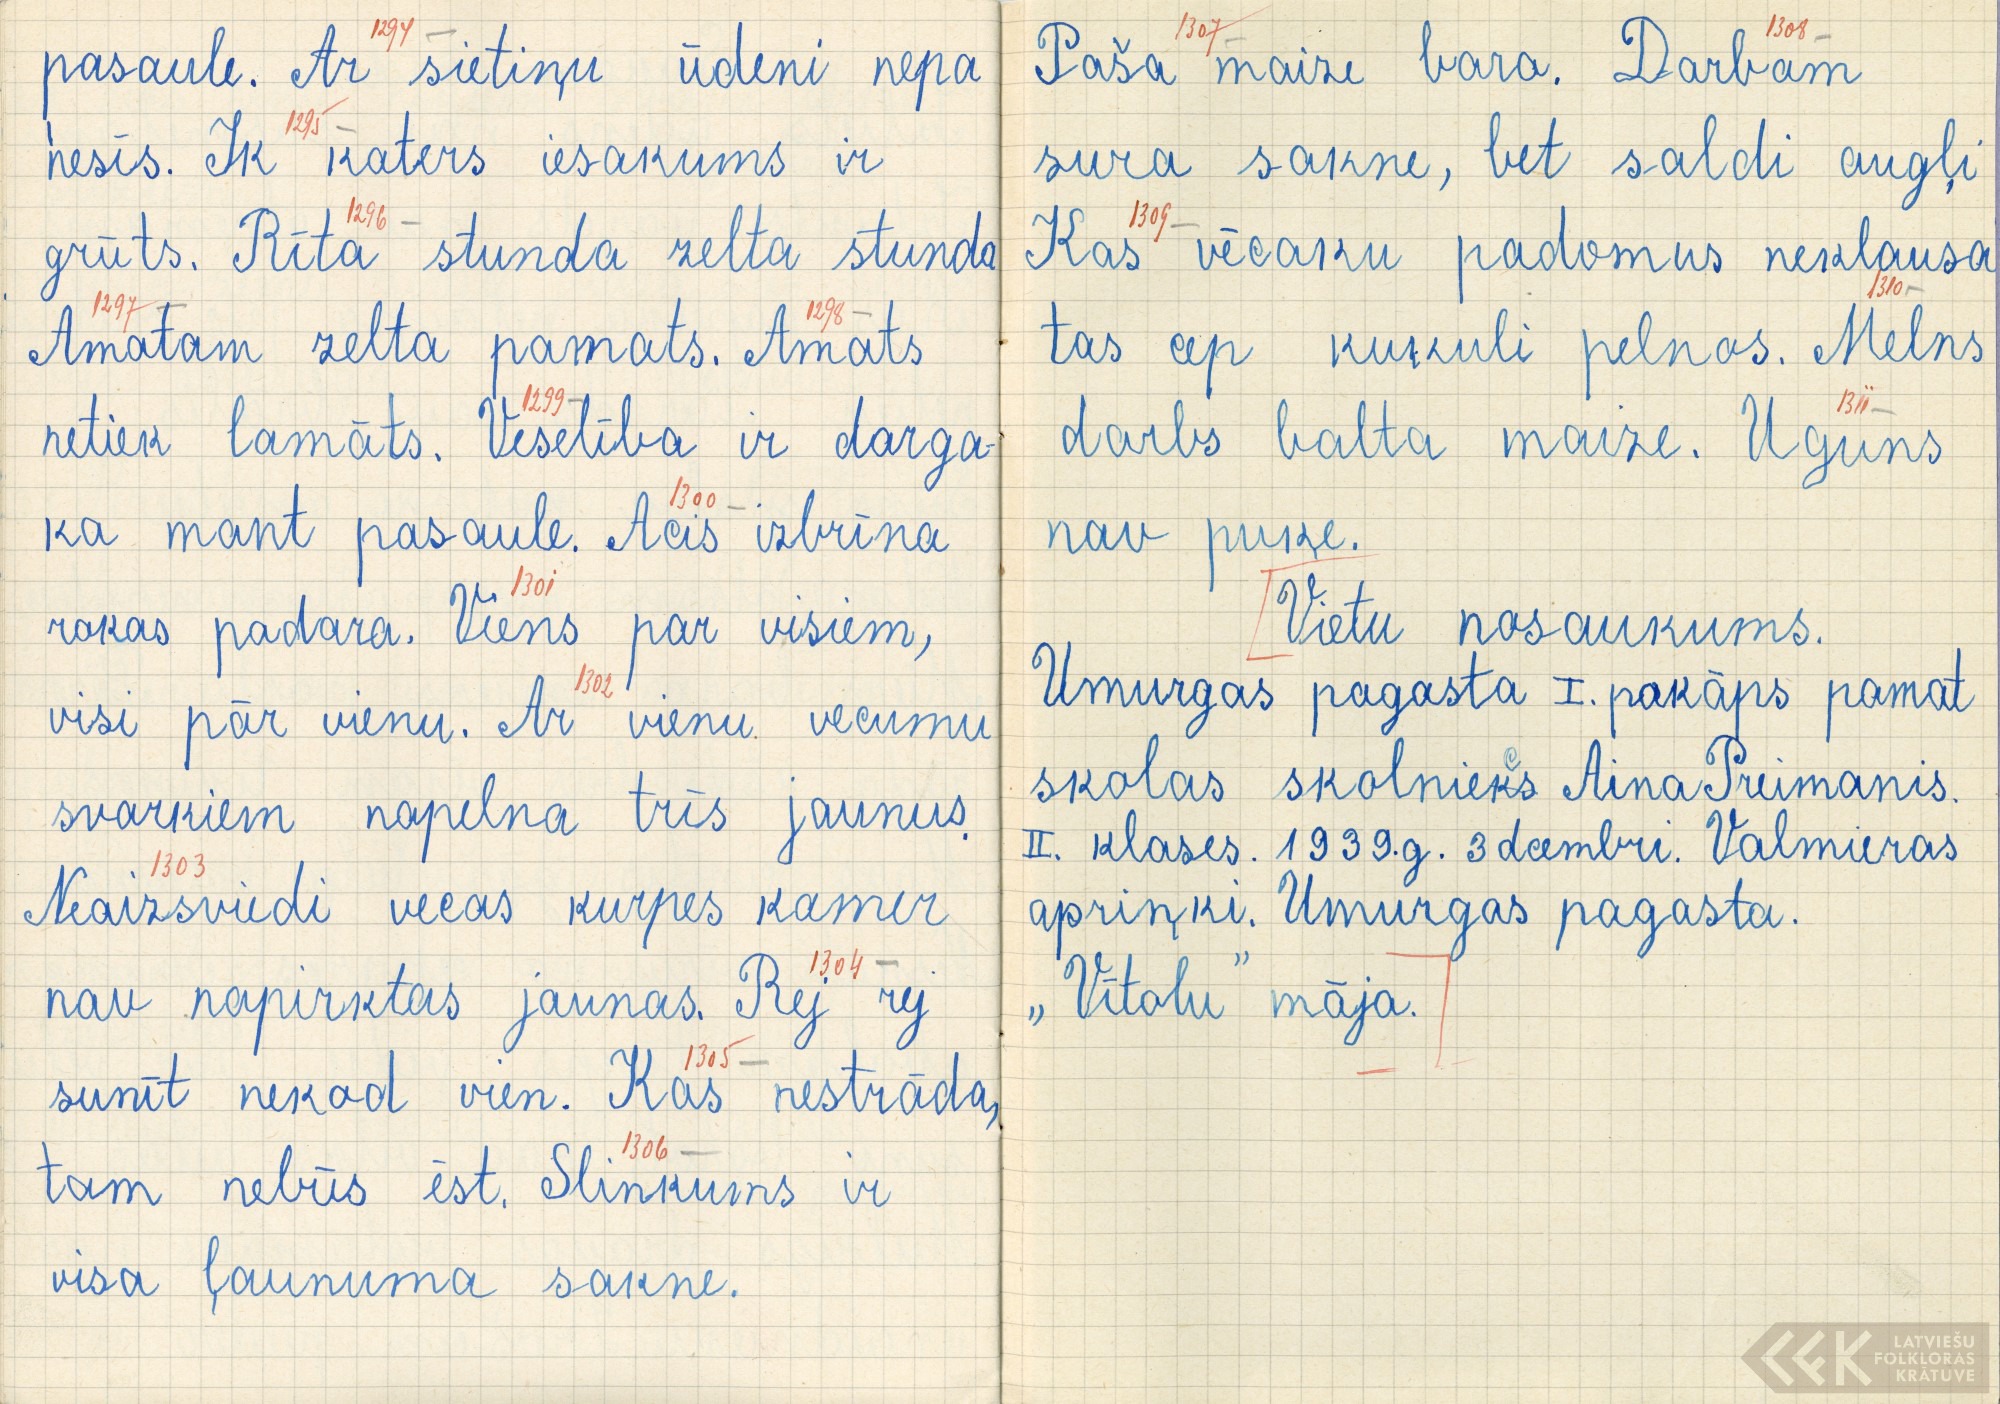 1294
pasaule. Ar sietiņu ūdeni nepa
1295
nesīs. Ik katers iesakums ir
1296
grūts. Rīta stunda zelta stunda
1297 1298
Amatam zelta pamats. Amats
1299
netiek lamāts. Veselība ir darga-
1300
ka mant pasaule. Acis izbrīna
1301
rokas padara. Viens par visiem,
1302
visi pār vienu. Ar vienu vecumu
svarkiem nopelna trīs jaunus.
1303
Neaizsviedi vecas kurpes kamer
1304
nav nopirktas jaunas. Rej rej
1305
sunīt nekad vien. Kas nestrāda,
1306
tam nebūs ēst. Slinkums ir
visa ļaunuma sakne.
1307 1308
Paša maize bara. Darbam
sura sakne, bet saldi augļi
1309
Kas vēcaku padomus neklausa
1310
tas cep kukuli pelnos. Melns
1311
darbs balta maize. Uguns
nav puķe.
Vietu nosaukums.
Umurgas pagasta I. pakāps pamat
skolas skolnieks Aina Preimanis.
II. klases. 1939.g. 3 decembri. Valmieras
apriņķi. Umurgas pagasta.
„Vītolu" māja.
LATVIEŠU
FOLKLORAS
KRĀTUVE